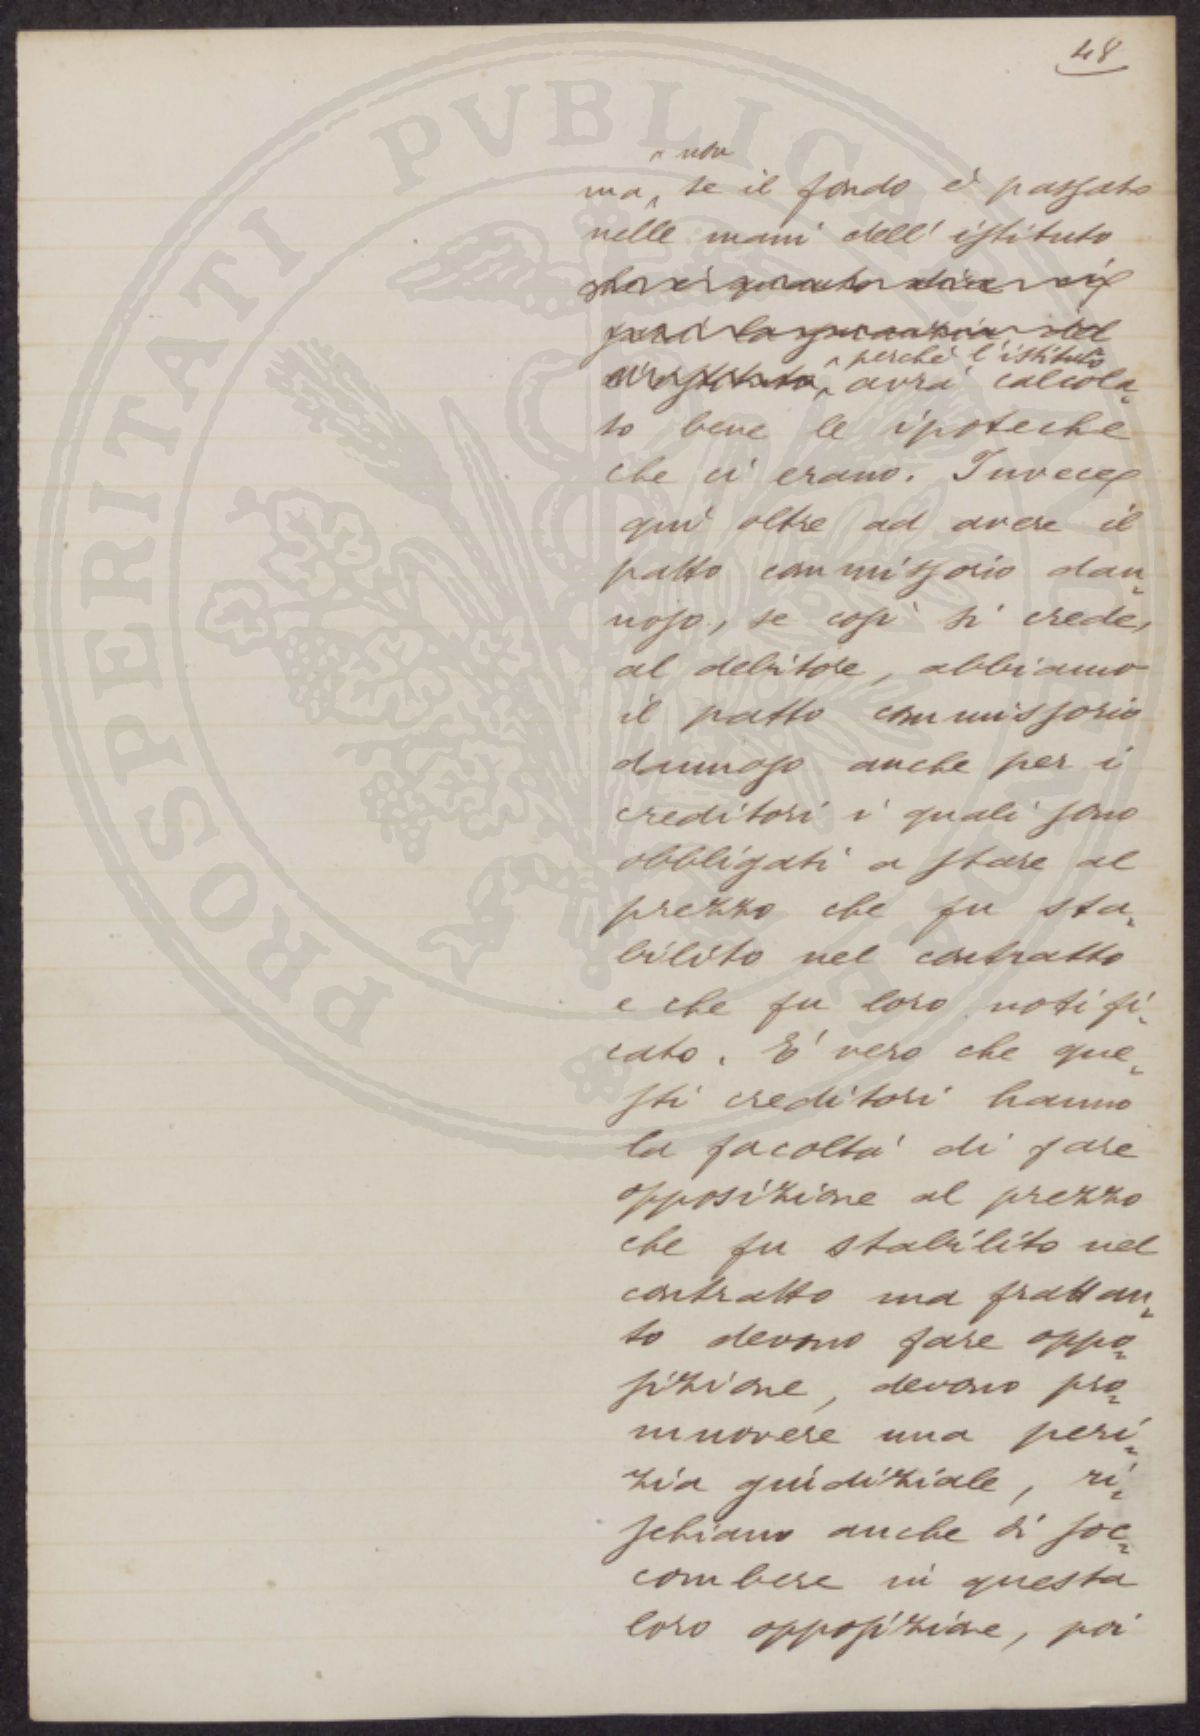 48
non
ma, se il fondo è passato
nelle mani dell' istituto
perchè l'istituto
avrà calcola=
to bene le ipoteche
che ci erano. Invece
qui oltre ad avere il
patto commissorio dan=
noso, se così si crede,
al debitore, abbiamo
il patto commissorio
dannoso anche per i
creditori i quali sono
obbligati a stare al
prezzo che fu sta=
bilito nel contratto
e che fu loro notifi=
cato. E' vero che que=
sti creditori hanno
la facoltà di fare
opposizione al prezzo
che fu stabilito nel
contratto ma frattan=
to devono fare oppo=
sizione, devono pro=
muovere una peri=
zia giudiziale, ri=
schiano anche di soc=
combere in questa
loro opposizione, poi
PROSPERITATI PUBLICAE AUGENDAE